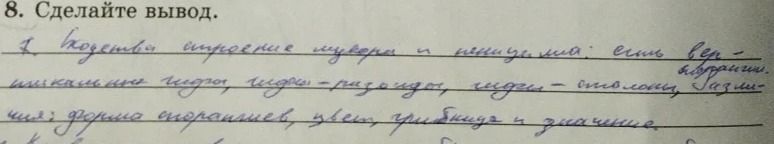 8. Сделайте вывод.
1. Сходства строение мукора и пеницилла: есть вер-
тикальные гифы, гифы-ризоиды, гифы-столоны, спорангии. Разли-
чия: форма спорангиев, цвет, грибница и значение.